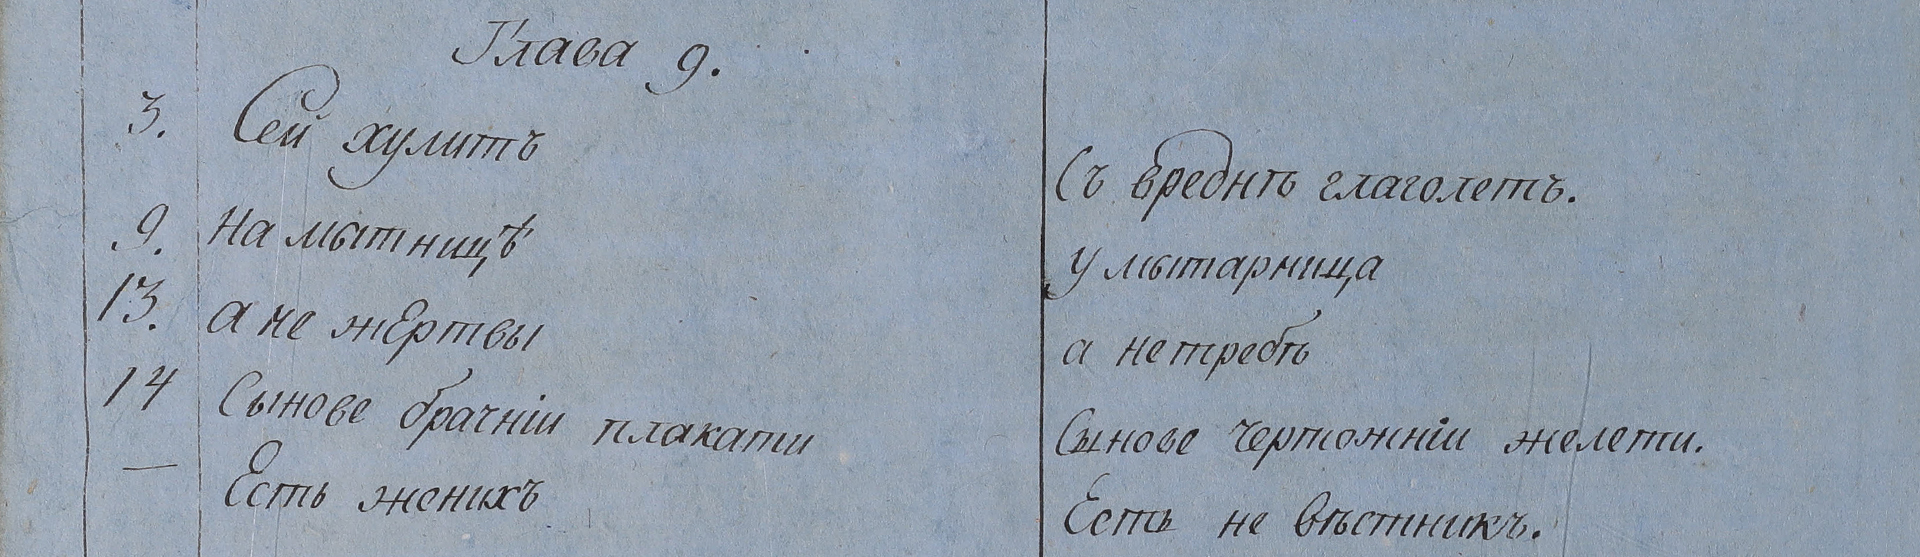 Глава 9.
3. Сей хулитъ
Съ вреднѣ глаголетъ.
9. На мытницѣ
у мытарница
13. а не жертвы
а не требѣ
14 Сынове брачніи плакати
Сынове чертожніи желети.
— Есть женихъ
Есть не вѣстникъ.